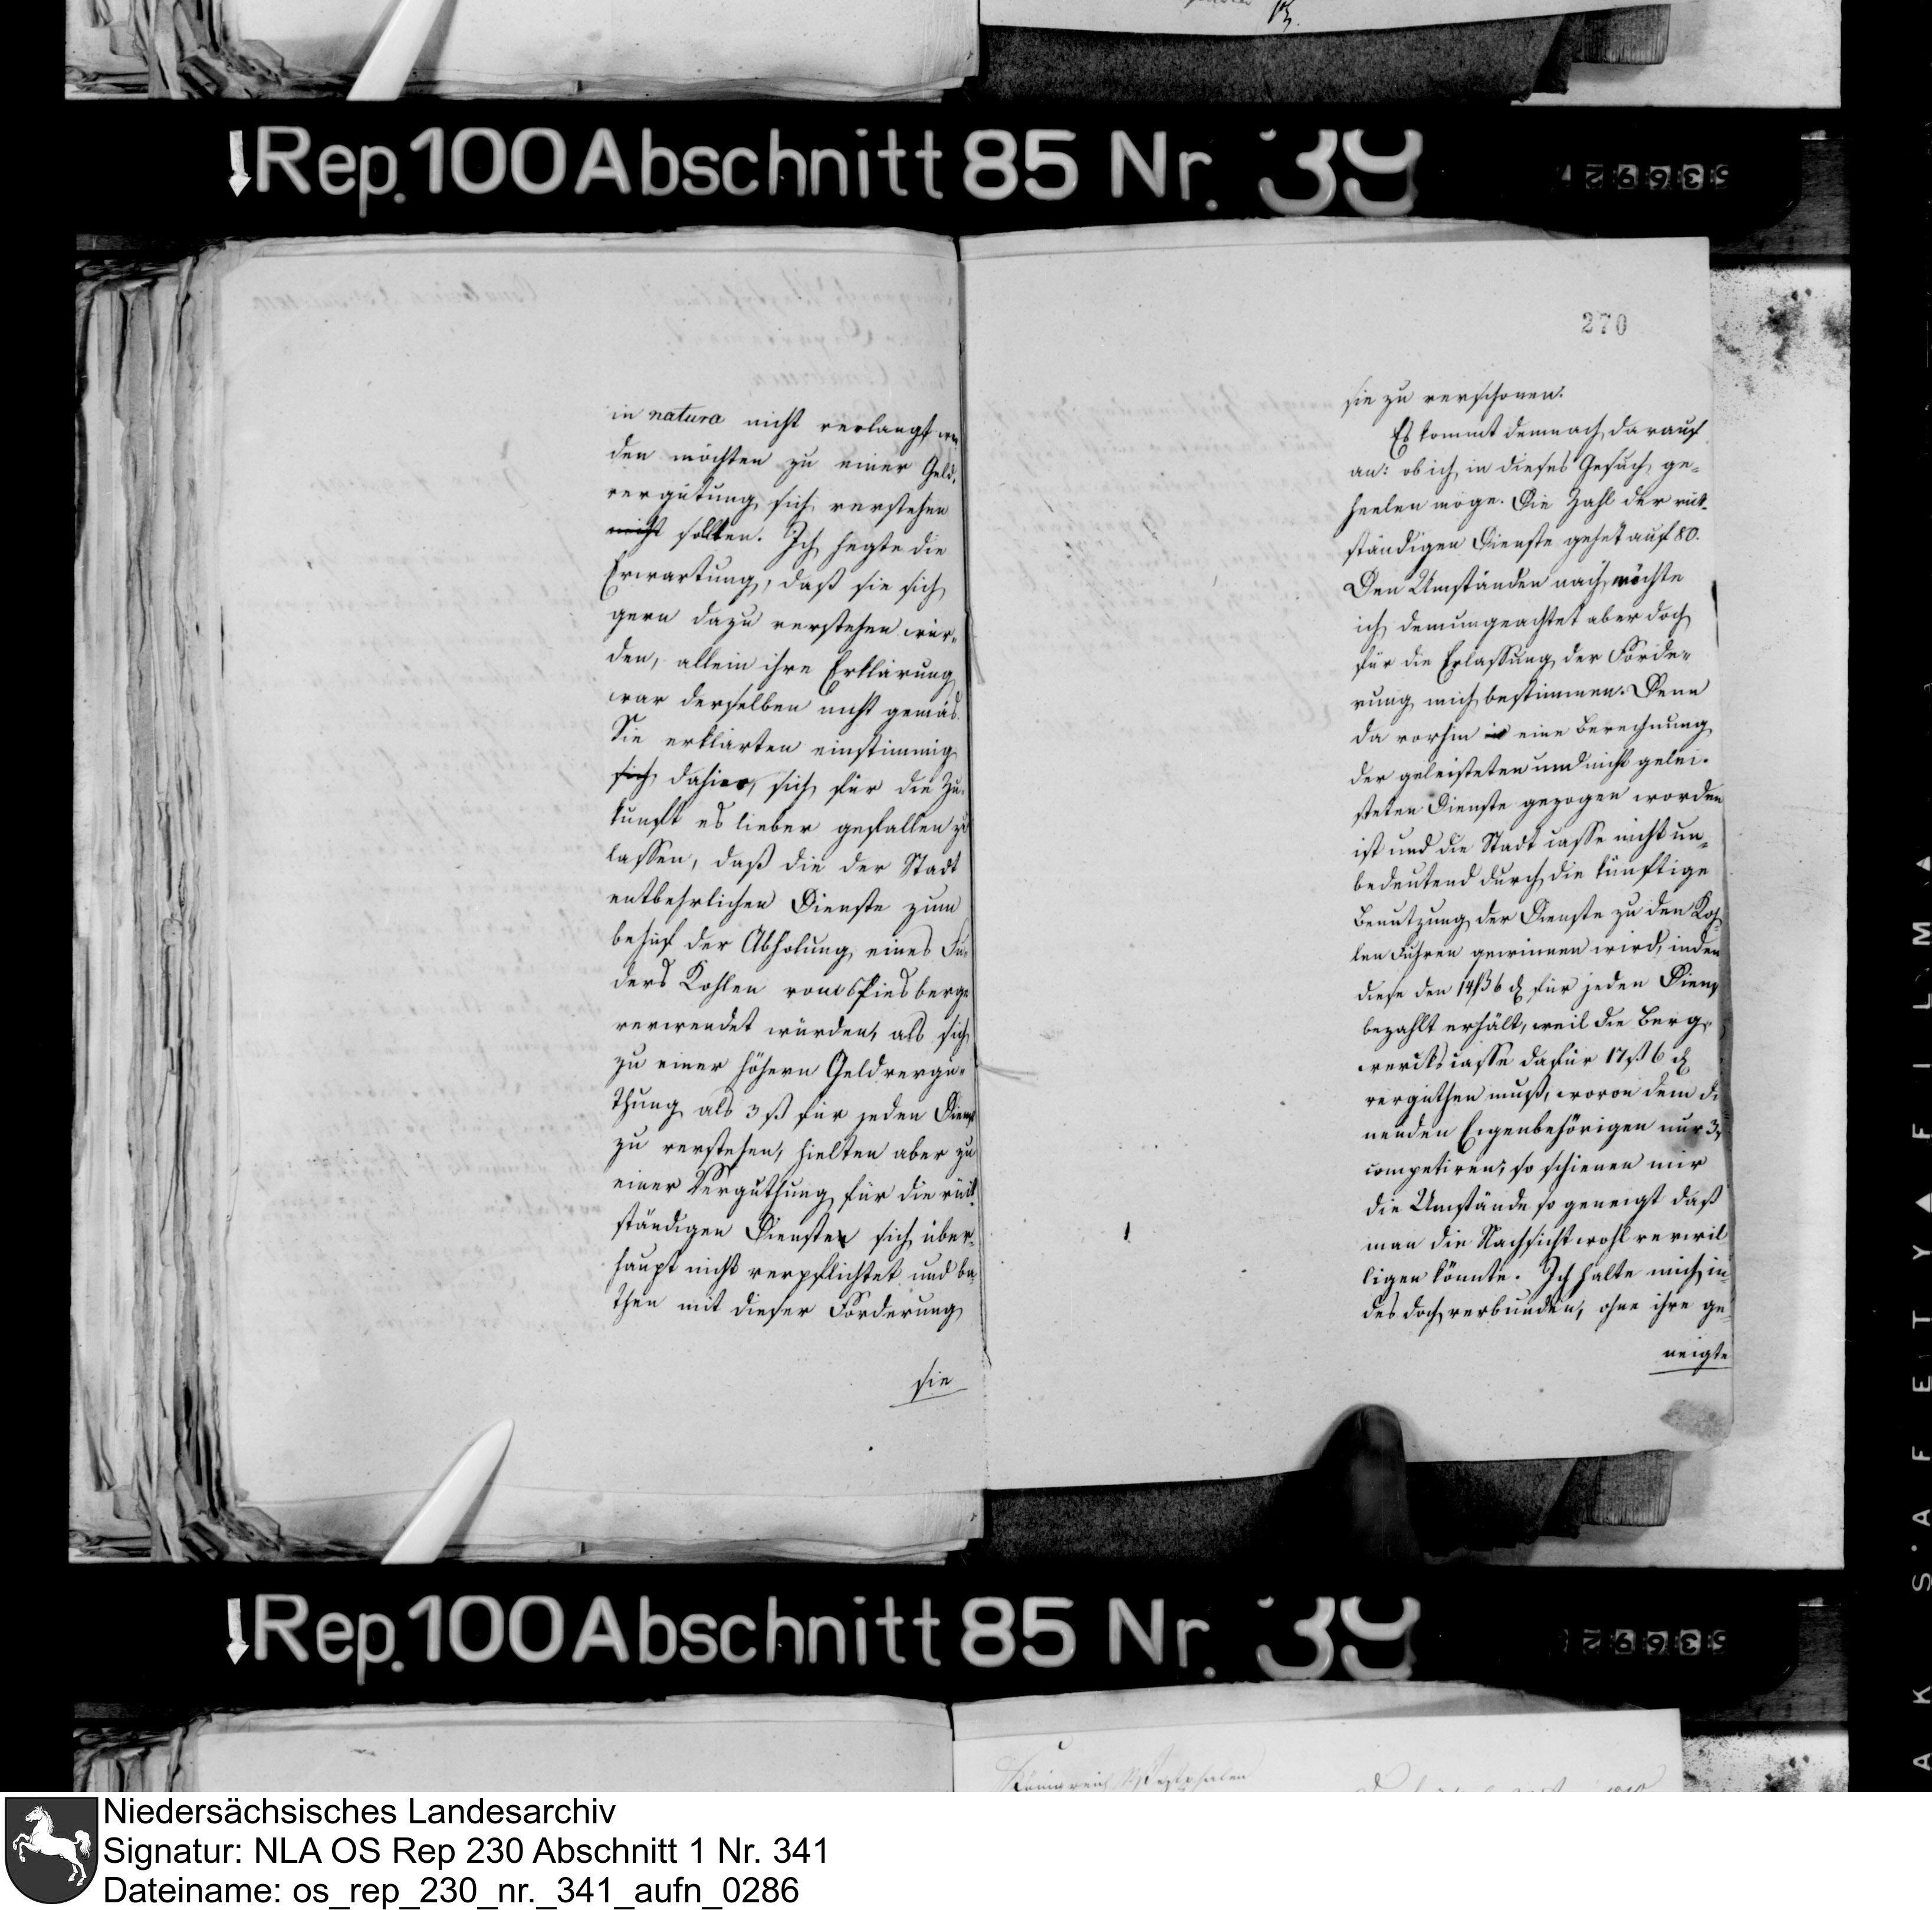 Rep. 100 Abschnitt 85 Nr. 39
in natura nicht verlangt wer
den möchten zu einer Geld-
vergütung sich verstehen
nicht sollten. Ich hegte die
Erwartung, daß sie sich
gern dazu verstehen wür-
den, allein ihre Erklärung
war derselben nicht gemäs.
Sie erklärten einstimmig
sich dahier, sich für die Zu-
kunft es lieber gefallen zu
lassen, daß die der Stadt
entbehrlichen Dienste zum
behuf der Abholung eines Fu-
ders Kohlen vom Piesberge
verwendet würden, als sich
zu einer höhern Geldvergü-
thung als 3 ß für jeden Dienst
zu verstehen, hielten aber zu
einer Verguthung für die rück
ständigen Diensten sich über-
haupt nicht verpflichtet und ba-
then mit dieser Forderung
sie
270
sie zu verschonen.
Es kommt demnach darauf
an: ob ich in dieses Gesuch ge-
heelen möge. Die Zahl der rück-
ständigen Dienste gehet auf 80.
Den Umständen nach möchte
ich demungeachtet aber doch
für die Erlassung der Forde-
rung mich bestimmen. Denn
da vorhin eine Berechnung
der geleisteten und nicht gelei-
steten Dienste gezogen worden
ist und die Stadt casse nicht un-
bedeutend durch die künftige
Benutzung der Dienste zu den Koh
len Fuhren gewinnen wird, indem
diese den 14 ß 6 d für jeden Dienst
bezahlt erhält, weil die Berg-
wercks casse dafür 17 ß 6 d
verguthen muß, wovon dem die
nenden Eigenbehörigen nur 3 ß
competiren; so schienen mir
die Umstände so geneigt daß
man die Nachsicht wohl verwil
ligen könnte. Ich halte mich in-
des doch verbunden, ohne ihre ge-
neigte
Rep. 100 Abschnitt 85 Nr. 39
Königreich Westphalen
AK SAFETY FILM
Niedersächsisches Landesarchiv
Signatur: NLA OS Rep 230 Abschnitt 1 Nr. 341
Dateiname: os_rep_230_nr._341_aufn_0286